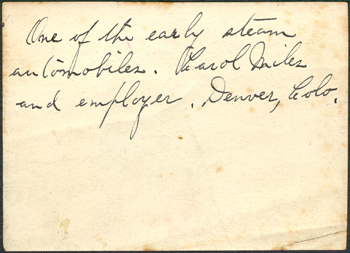 One of the early steam
automobiles. Carol Miles
and employer. Denver, Colo.